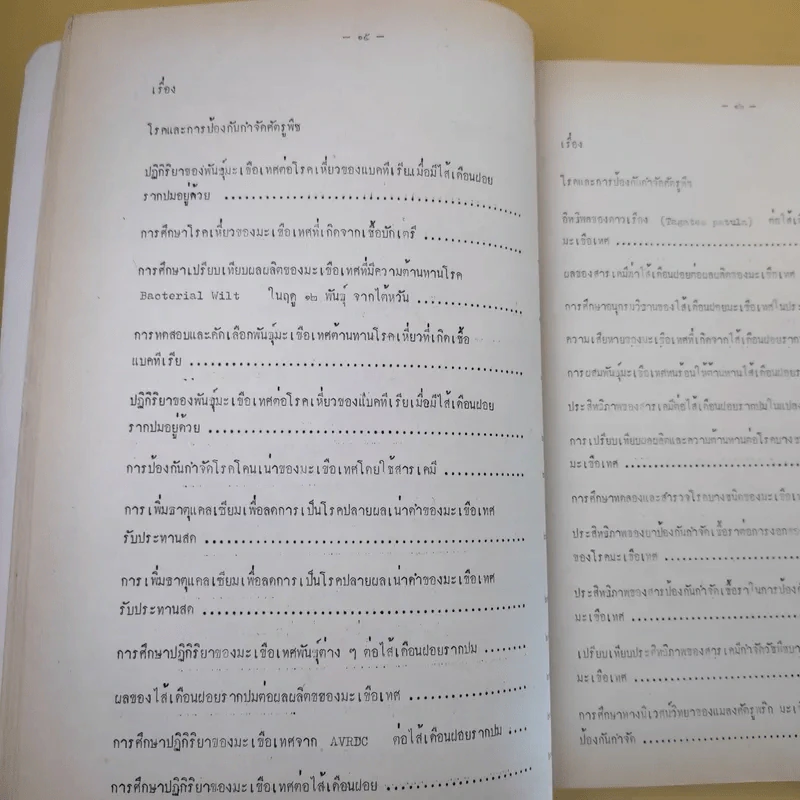 - ๑๕ -
เรื่อง
โรคและการป้องกันกำจัดศัตรูพืช
ปฏิกิริยาของพันธุ์มะเขือเทศต่อโรคเหี่ยวของแบคทีเรียเมื่อมีไส้เดือนฝอย
รากปมอยู่ด้วย
การศึกษาโรคเหี่ยวของมะเขือเทศที่เกิดจากเชื้อบักเตรี
การศึกษาเปรียบเทียบผลผลิตของมะเขือเทศที่มีความต้านทานโรค
Bacterial Wilt ในฤดู ๑๒ พันธุ์ จากไต้หวัน
การทดสอบและคัดเลือกพันธุ์มะเขือเทศต้านทานโรคเหี่ยวที่เกิดเชื้อ
แบคทีเรีย
ปฏิกิริยาของพันธุ์มะเขือเทศต่อโรคเหี่ยวของแบคทีเรียเมื่อมีไส้เดือนฝอย
รากปมอยู่ด้วย
การป้องกันกำจัดโรคโคนเน่าของมะเขือเทศโดยใช้สารเคมี
การเพิ่มธาตุแคลเซียมเพื่อลดการเป็นโรคปลายผลเน่าดำของมะเขือเทศ
รับประทานสด
การเพิ่มธาตุแคลเซียมเพื่อลดการเป็นโรคปลายผลเน่าดำของมะเขือเทศ
รับประทานสด
การศึกษาปฏิกิริยาของมะเขือเทศพันธุ์ต่าง ๆ ต่อไส้เดือนฝอยรากปม
ผลของไส้เดือนฝอยรากปมต่อผลผลิตของมะเขือเทศ
การศึกษาปฏิกิริยาของมะเขือเทศจาก AVRDC ต่อไส้เดือนฝอยรากปม
การศึกษาปฏิกิริยาของมะเขือเทศต่อไส้เดือนฝอย
- ๑๖ -
เรื่อง
โรคและการป้องกันกำจัดศัตรูพืช
อิทธิพลของดาวเรือง (Tagetes patula) ต่อไส้เ
มะเขือเทศ
ผลของสารเคมีฆ่าไส้เดือนฝอยต่อผลผลิตของมะเขือเทศ
การศึกษาอนุกรมวิธานของไส้เดือนฝอยมะเขือเทศในประ
ความเสียหายของมะเขือเทศที่เกิดจากไส้เดือนฝอยราก
การผสมพันธุ์มะเขือเทศทนร้อนให้ต้านทานไส้เดือนฝอยรา
ประสิทธิภาพของสารเคมีต่อไส้เดือนฝอยรากปมในแปลง
การเปรียบเทียบผลผลิตและความต้านทานต่อโรคบาง
มะเขือเทศ
การศึกษาทดลองและสำรวจโรคบางชนิดของมะเขือเ
ประสิทธิภาพของยาป้องกันกำจัดเชื้อราต่อการงอก
ของโรคมะเขือเทศ
ประสิทธิภาพของสารป้องกันกำจัดเชื้อราในการป้อง
มะเขือเทศ
เปรียบเทียบประสิทธิภาพของสารเคมีกำจัดวัชพืชบา
มะเขือเทศ
การศึกษาทางนิเวศน์วิทยาของแมลงศัตรูพริก มะเขื
ป้องกันกำจัด